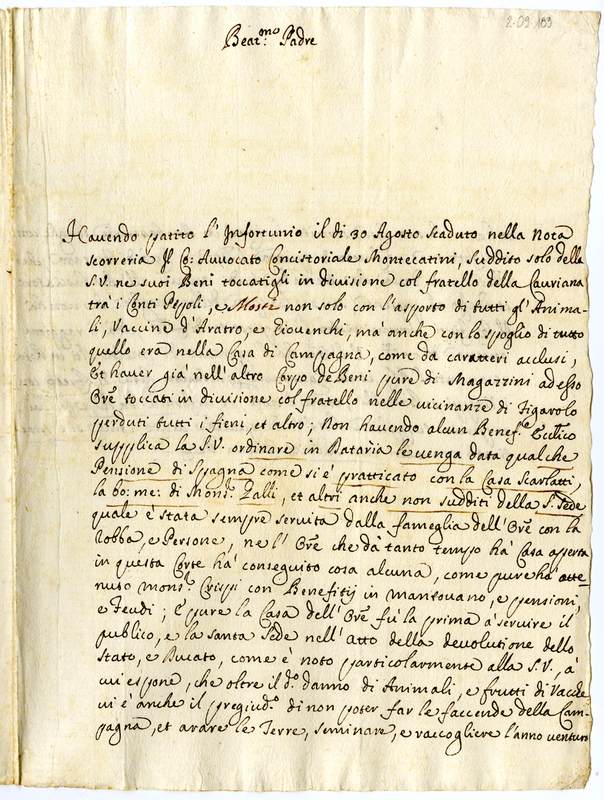 2-09 109
Beat.mo Padre
Havendo patito l' Infortunio il di 30 Agosto scaduto nella Nota
scorreria Il Co: Avvocato Concistoriale Montecatini, suddito solo della
S.V. ne suoi Beni toccatigli in divisione col fratello della Cauriana
trà i Conti Pepoli, e Mosti non solo con l'asporto di tutti gl' Anima-
li, Vaccine d'Aratro, e Giovenchi, mà anche con lo spoglio di tutto
quello era nella Casa di Campagna, come da caratteri acclusi,
Et haver già nell' altro Corpo de Beni pure di Magazzini ad esso
Ore toccati in divisione col fratello nelle vicinanze di Figarolo
perduti tutti i fieni, et altro; Non havendo alcun Benef.e Eccl.ico
supplica la S.V. ordinare in Dataria le venga data qualche
Pensione di Spagna come si è pratticato con la Casa Scarlatti,
la bo: me: di Mons.r Zalli, et altri anche non sudditi della S. Sede
quale è stata sempre servita dalla fameglia dell' Ore con la
robba, e Persone, ne l' Ore che dà tanto tempo hà Casa aperta
in questa Corte hà conseguito cosa alcuna, come pure hà otte
nuto mons.r Crispi con Benefitij in mantovano, e pensioni,
e Feudi; E pure la Casa dell' Ore fù la prima à servire il
publico, e la santa Sede nell' atto della devolutione dello
Stato, e Ducato, come è noto particolarmente alla S.V., à
cui espone, che oltre il d.o danno di Animali, e frutti di Vacche
vi è anche il pregiud.o di non poter far le faccende della Cam-
pagna, et arare le Terre, seminare, e raccogliere l'anno venturo